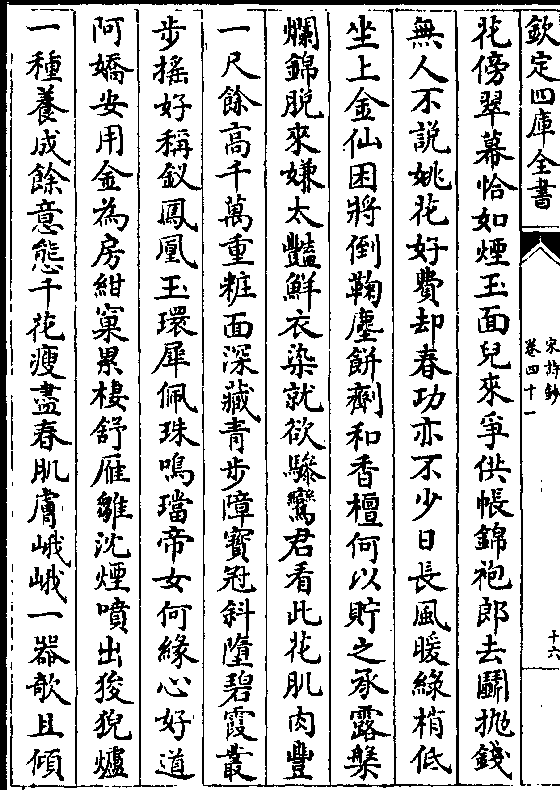 欽定四庫全書
宋詩鈔
卷四十一
十六
花傍翠幕恰如煙玉面兒來爭供帳錦袍郎去鬭抛錢
無人不説姚花好費却春功亦不少日長風暖綠梢低
坐上金仙困將倒鞠塵餅劑和香檀何以貯之承露槃
爛錦脱來嫌太豔鮮衣染就欲驂鸞君看此花肌肉豐
一尺餘高千萬重粧面深藏青步障寳冠斜墮碧霞叢
步摇好稱釵鳳凰玉環犀佩珠鳴璫帝女何縁心好道
阿嬌安用金為房紺窠累棲舒雁雛沈煙噴出狻猊爐
一種養成餘意態千花瘦盡春肌膚峨峨一器欹且傾